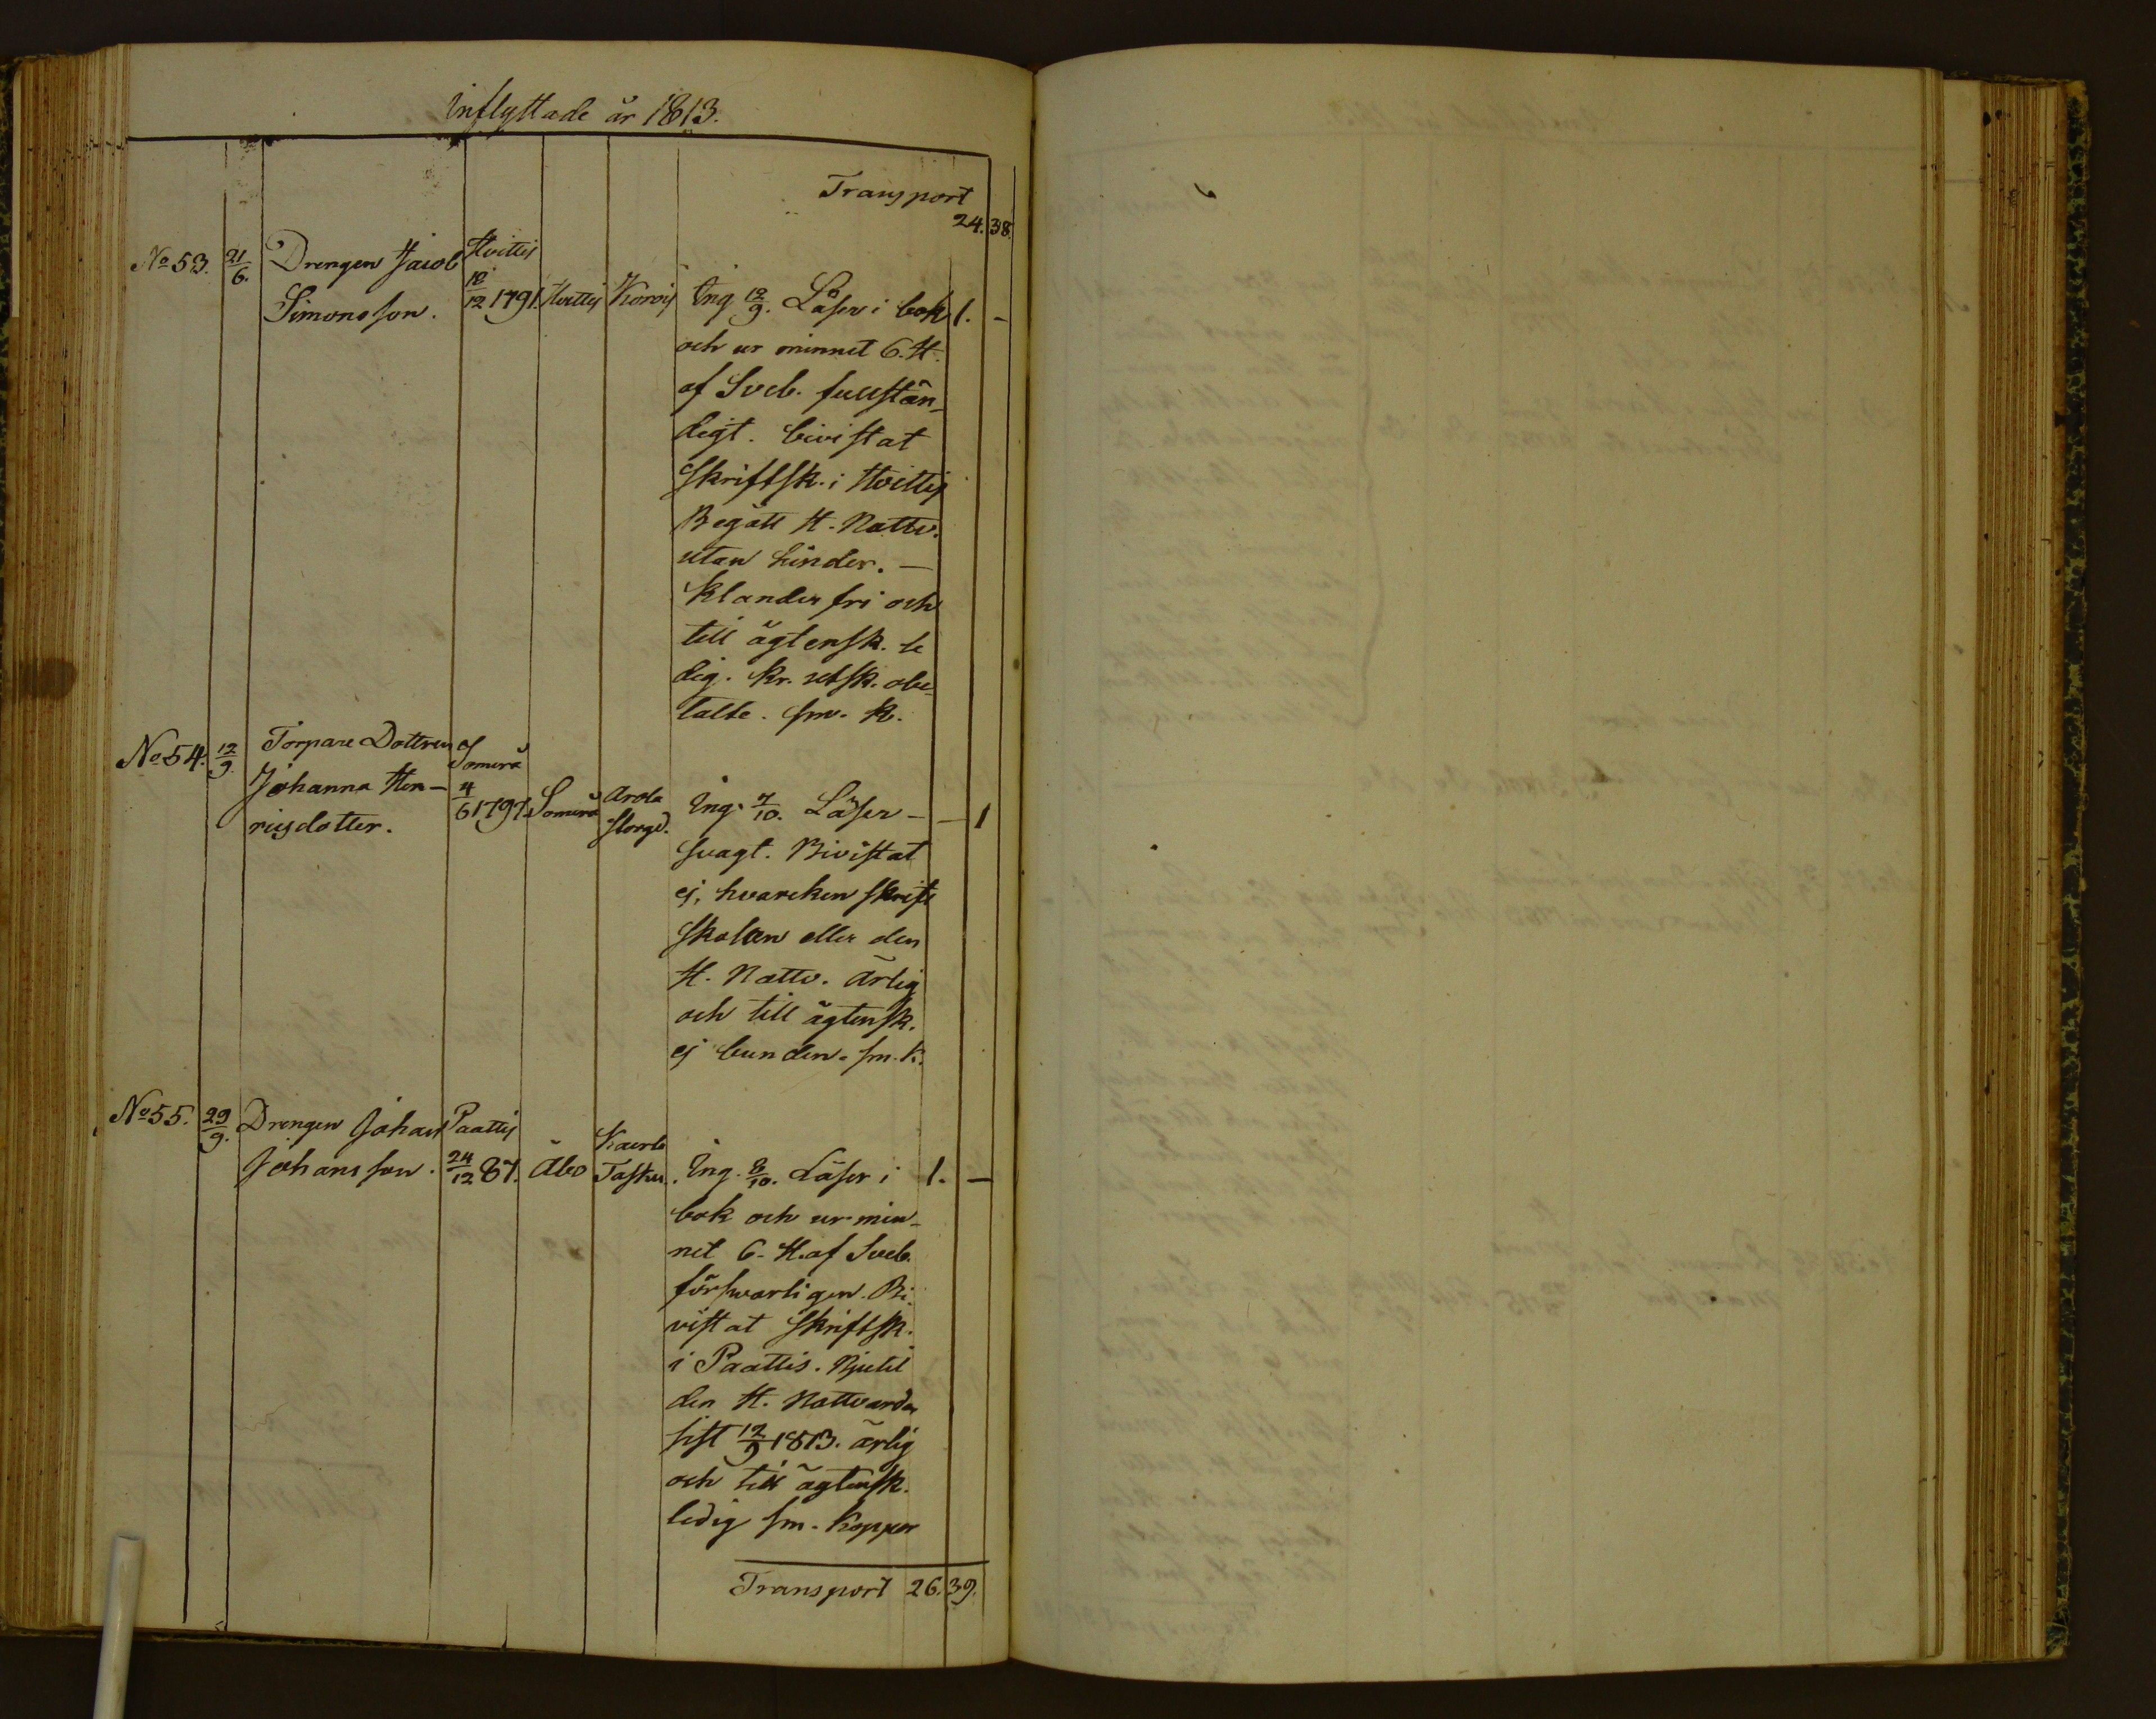 Inflyttade år 1813.
Transport
24. 38.
No 53. 21/6. Drengen Jacob Hvittis
Simonsson. 18/12 1791. Hvittis Korois Ing. 12/9. Läser i bok 1. -
och ur minnet 6. H.
af Sveb. fullstän-
digt. bivistat
skriftsk. i Hvittis
Begått H. Nattv.
utan hinder. -
klanderfri och
till ägtensk. le
dig. kr. utsk. obe-
talte. sm. k.
No 54. 12/9. Torpare Dottren Somerå
Johanna Hen- 4/6 1797. Somerå Arola Ing. 7/10. Läser - - 1
ricsdotter. storgd.
svagt. Bivistat
ej, hvarcken skrift
skolan eller den
H. Nattv. Ärlig
och till ägtensk.
ej bunden. sm. k.
No 55. 29/9. Drengen Johan Paattis
Johansson. 24/12 87. Åbo Kaerla Tasku. Ing. 8/10. Läser i 1. -
bok och ur min-
net 6. H. af Sveb.
försvarligen. Bi-
vistat skriftsk.
i Paattis. Njutit
den H. Nattvarden
sist 12/9 1813. ärlig
och till ägtensk.
ledig sm. koppor
Transport 26. 39.